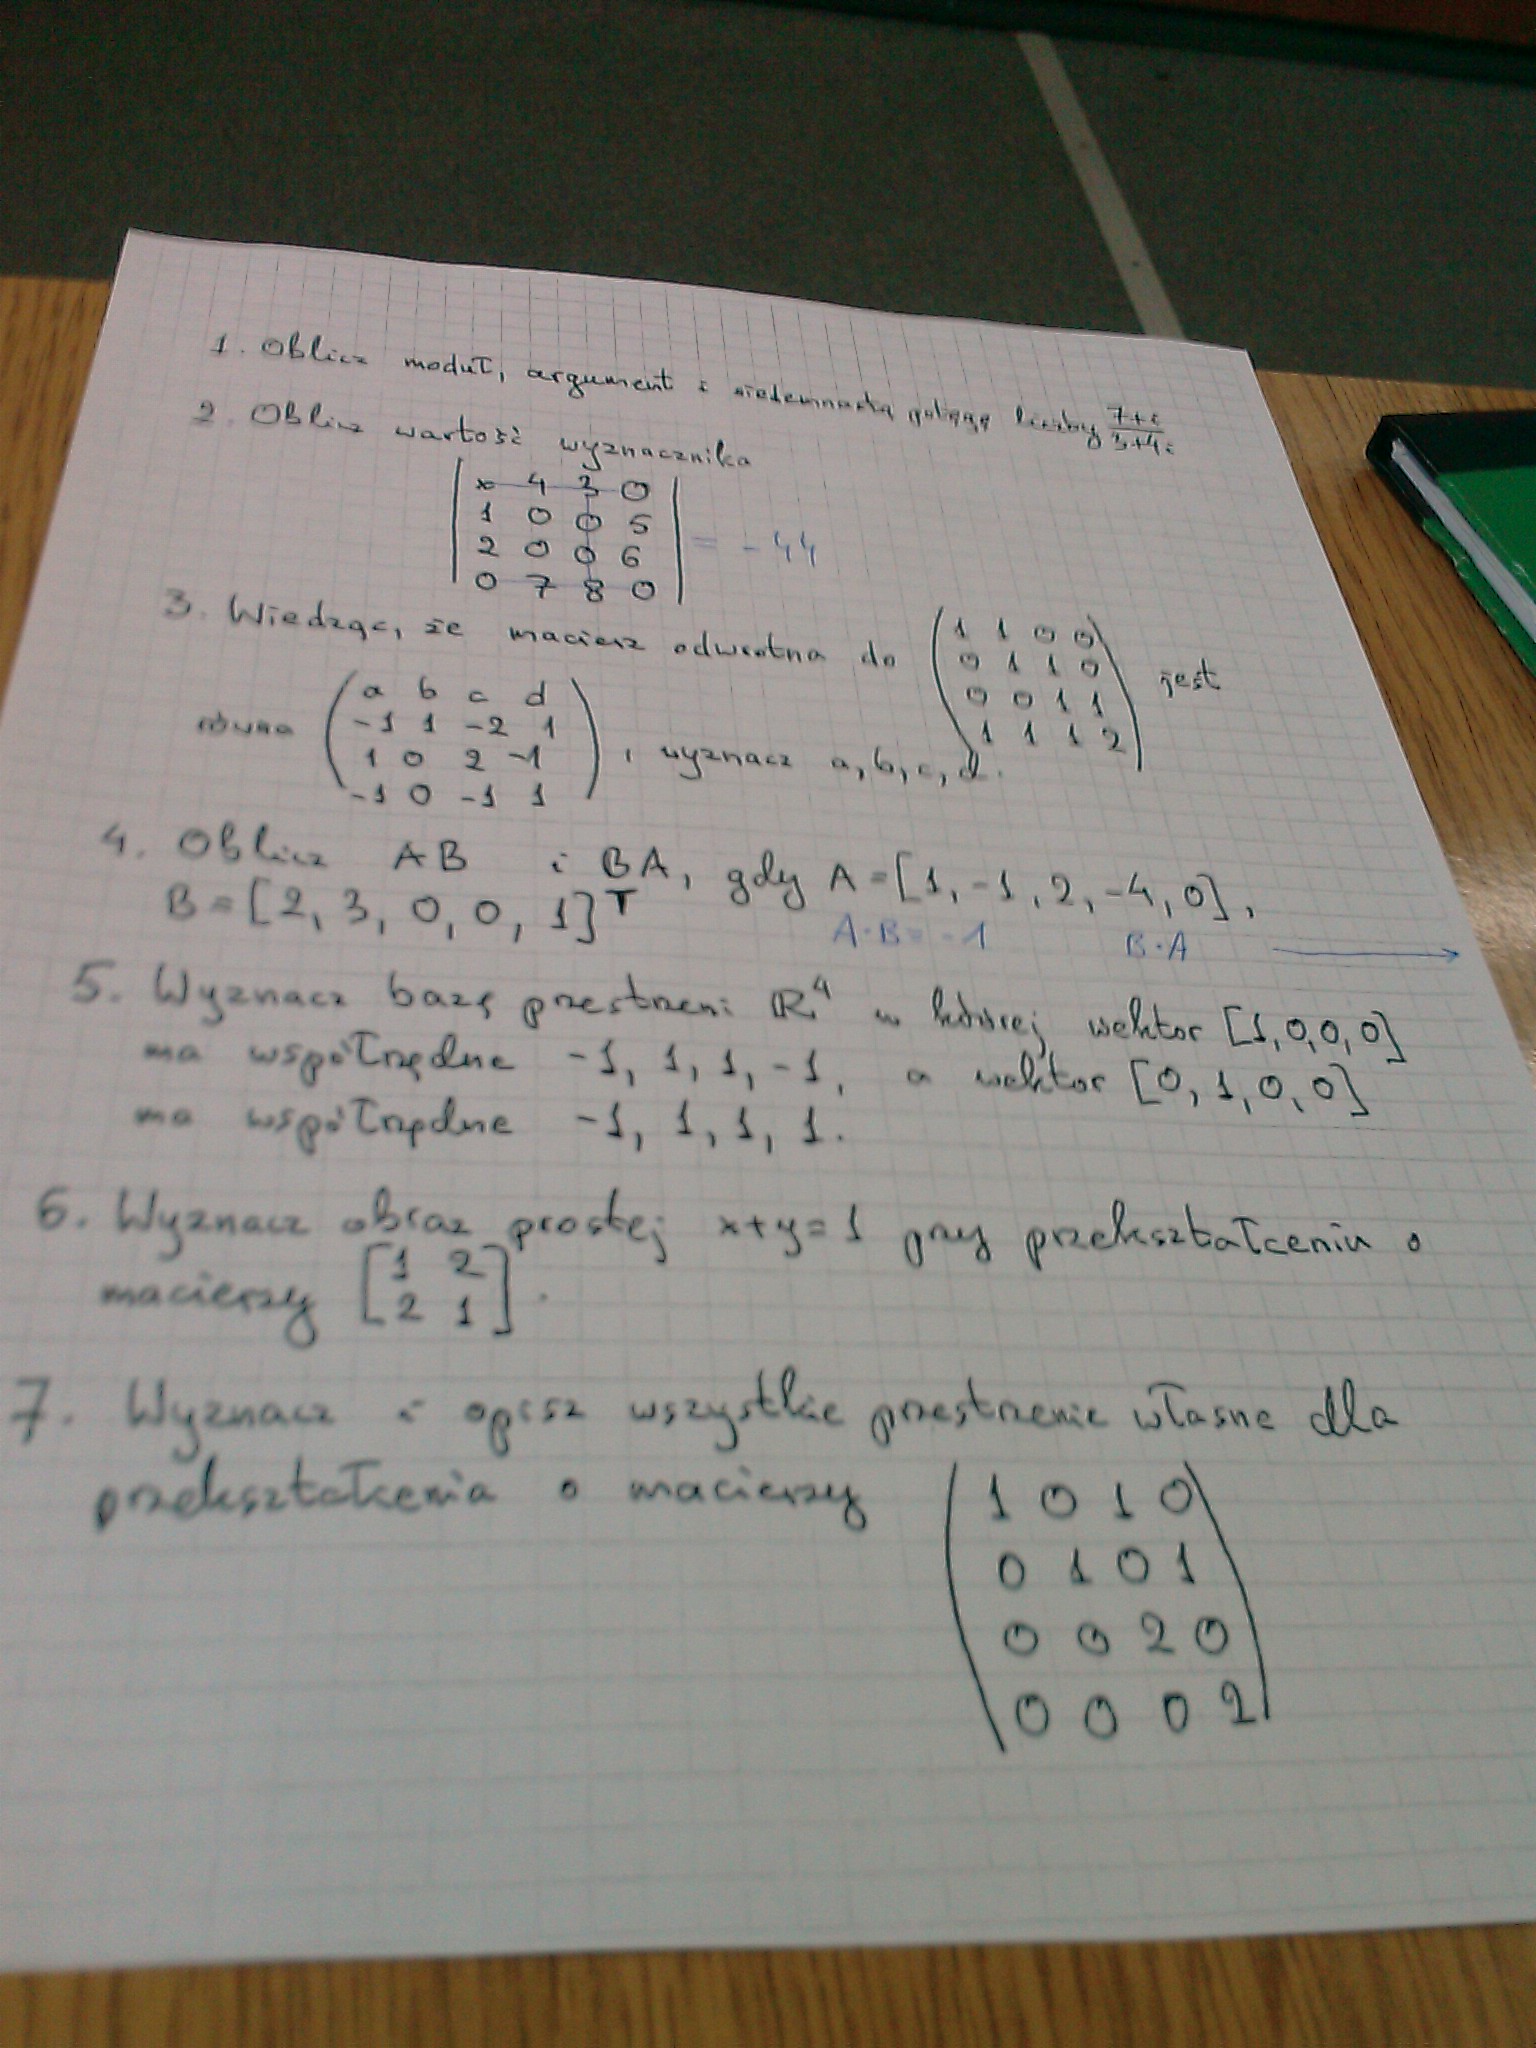 1. Oblicz moduł, argument i siedemnastą potęgę liczby 7+i / 3+4i
2. Oblicz wartość wyznacznika
x 4 3 0
1 0 0 5
2 0 0 6
0 7 8 0
= -44
3. Wiedząc, że macierz odwrotna do
1 1 0 0
0 1 1 0
0 0 1 1
1 1 1 2
jest
równa
a b c d
-1 1 -2 1
1 0 2 -1
-1 0 -1 1
, wyznacz a, b, c, d.
4. Oblicz AB i BA, gdy A = [1, -1, 2, -4, 0],
B = [2, 3, 0, 0, 1]ᵀ
A·B = -1 B·A
5. Wyznacz bazę przestrzeni ℝ⁴ w której wektor [1,0,0,0]
ma współrzędne -1, 1, 1, -1, a wektor [0, 1, 0, 0]
ma współrzędne -1, 1, 1, 1.
6. Wyznacz obraz prostej x+y=1 przy przekształceniu o
macierzy
1 2
2 1
.
7. Wyznacz i opisz wszystkie przestrzenie własne dla
przekształcenia o macierzy
1 0 1 0
0 1 0 1
0 0 2 0
0 0 0 2